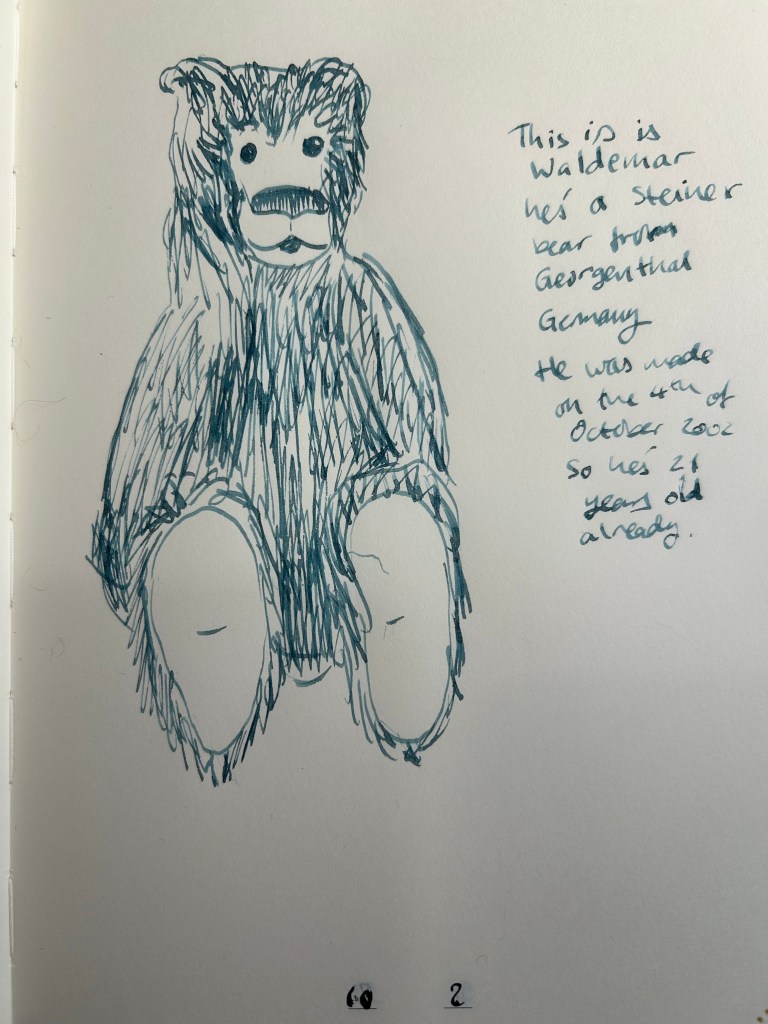 This is is
Waldemar
he's a Steiner
bear from
Georgenthal
Germany
He was made
on the 4th of
October 2002
So he's 21
years old
already.
10 2